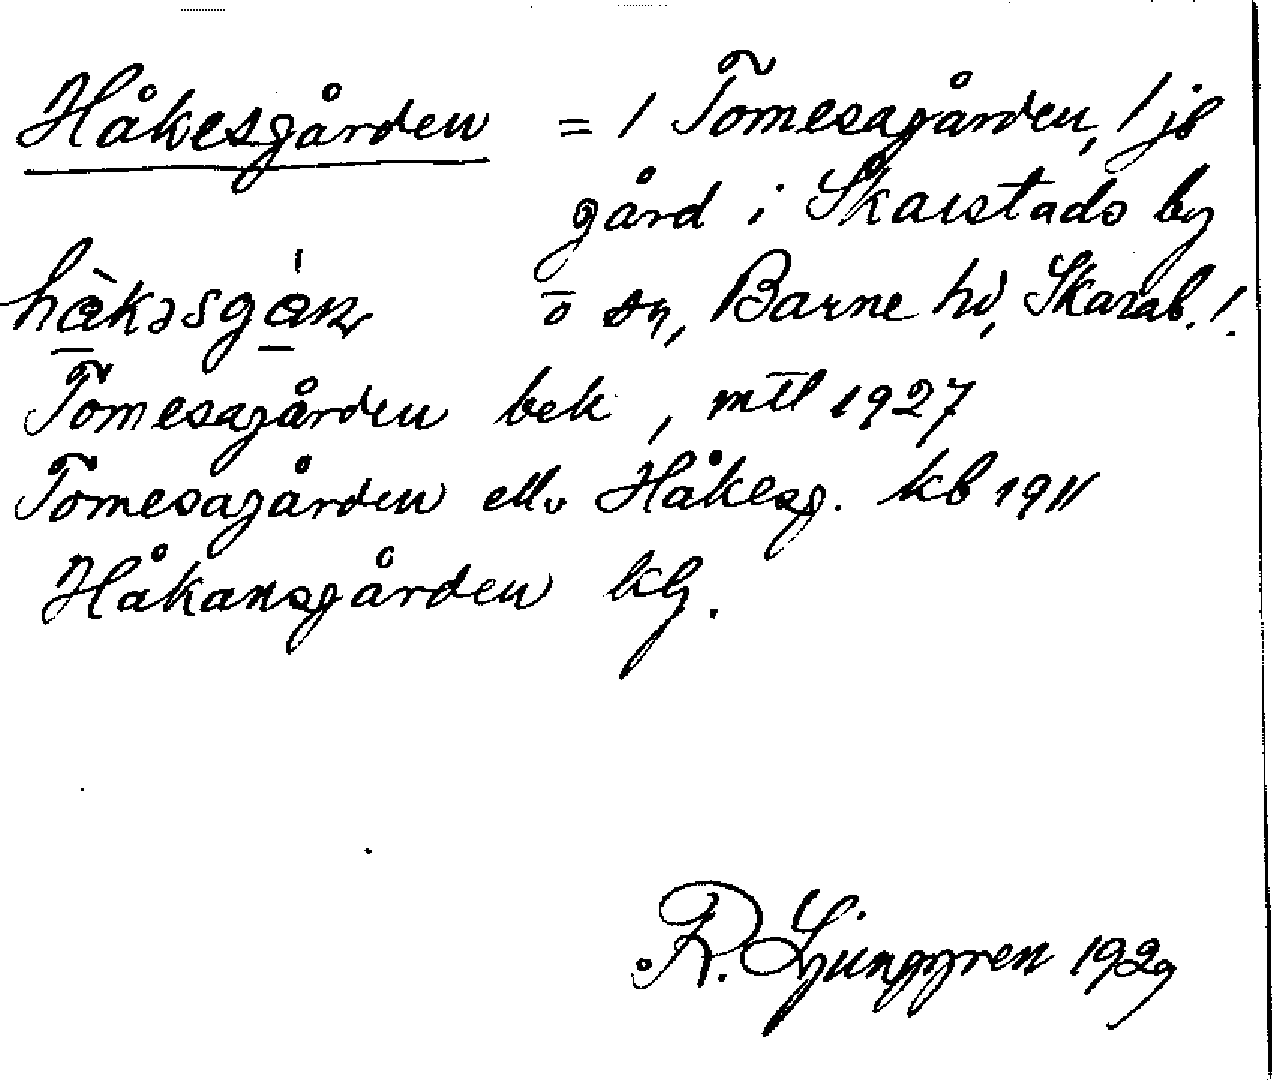 Håkesgården = / Tomesagården, / jb
gård i Skarstads by
håkəsgán o sn, Barne hd, Skarab. /.
Tomesagården bek, mtl 1927
Tomesagården ell. Håkesg. kb 1911
Håkansgården
R. Ljunggren 1929